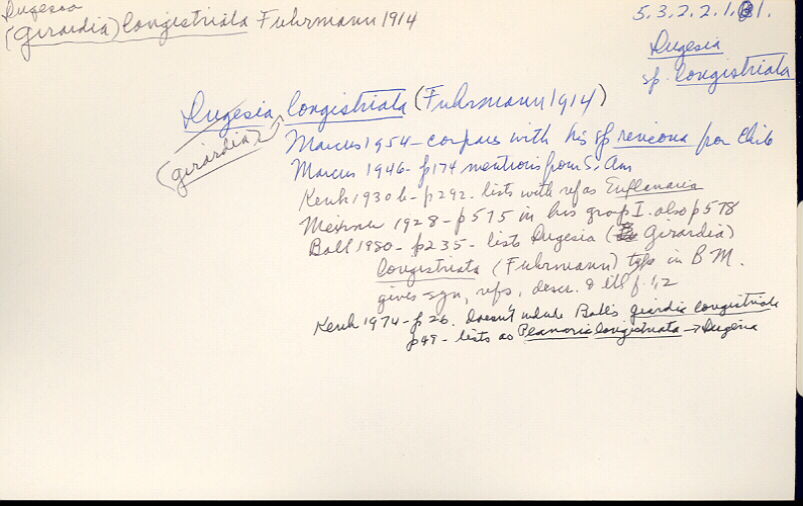 Dugesia
(Girardia) longistriata Fuhrmann 1914
5.3.2.2.1.1.
Dugesia
sp. longistriata
Dugesia longistriata (Fuhrmann 1914)
(girardia)
Marcus 1954 - compares with his sp rincona for Chile
Marcus 1946 - p174 mentions from S. Am
Kenk 1930 b - p292. lists with ref as Euplanaria
Meixner 1928 - p575 in his group I. also p578
Ball 1980 - p235 - lists Dugesia (Girardia)
longistriata (Fuhrmann) type in B M.
gives syn, refs, descr. & ill f. 1,2
Kenk 1974 - p 26. doesn't include Ball's girardia longistriata
lists as Planaria longistriata → Dugesia